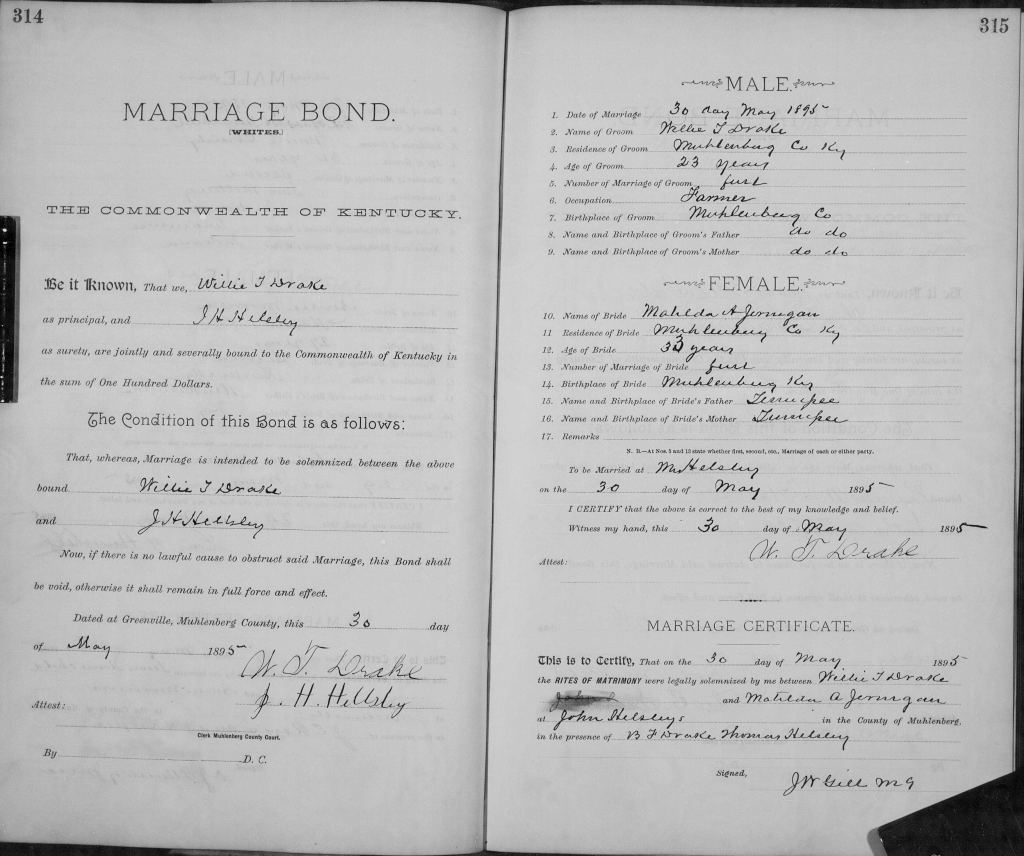 314
MARRIAGE BOND.
[WHITES.]
THE COMMONWEALTH OF KENTUCKY.
Be it Known, That we, Willie T Drake
as principal, and J H Helsley
as surety, are jointly and severally bound to the Commonwealth of Kentucky in
the sum of One Hundred Dollars.
The Condition of this Bond is as follows:
That, whereas, Marriage is intended to be solemnized between the above
bound Willie T Drake
and J H Hellsley
Now, if there is no lawful cause to obstruct said Marriage, this Bond shall
be void, otherwise it shall remain in full force and effect.
Dated at Greenville, Muhlenberg County, this 30 day
of May 1895
W. T. Drake
J. H. Hellsley
Attest:
Clerk Muhlenberg County Court.
By D. C.
315
MALE.
1. Date of Marriage 30 day May 1895
2. Name of Groom Willie T Drake
3. Residence of Groom Muhlenburg Co Ky
4. Age of Groom 23 years
5. Number of Marriage of Groom first
6. Occupation Farmer
7. Birthplace of Groom Muhlenburg Co
8. Name and Birthplace of Groom's Father do do
9. Name and Birthplace of Groom's Mother do do
FEMALE.
10. Name of Bride Matilda A Jernigan
11 Residence of Bride Muhlenburg Co Ky
12. Age of Bride 33 years
13. Number of Marriage of Bride first
14. Birthplace of Bride Muhlenburg Ky
15. Name and Birthplace of Bride's Father
16. Name and Birthplace of Bride's Mother
17. Remarks
N. B.—At Nos. 5 and 13 state whether first, second, etc., Marriage of each or either party.
To be Married at Mr Helsley
on the 30 day of May 1895
I CERTIFY that the above is correct to the best of my knowledge and belief.
Witness my hand, this 30 day of May 1895
W. T. Drake
Attest:
MARRIAGE CERTIFICATE.
This is to Certify, That on the 30 day of May 1895
the RITES OF MATRIMONY were legally solemnized by me between Willie T Drake
and Matilda A Jernigan
at John Helsleys in the County of Muhlenberg,
in the presence of B F Drake Thomas Helsley
Signed,
J W Gill M G